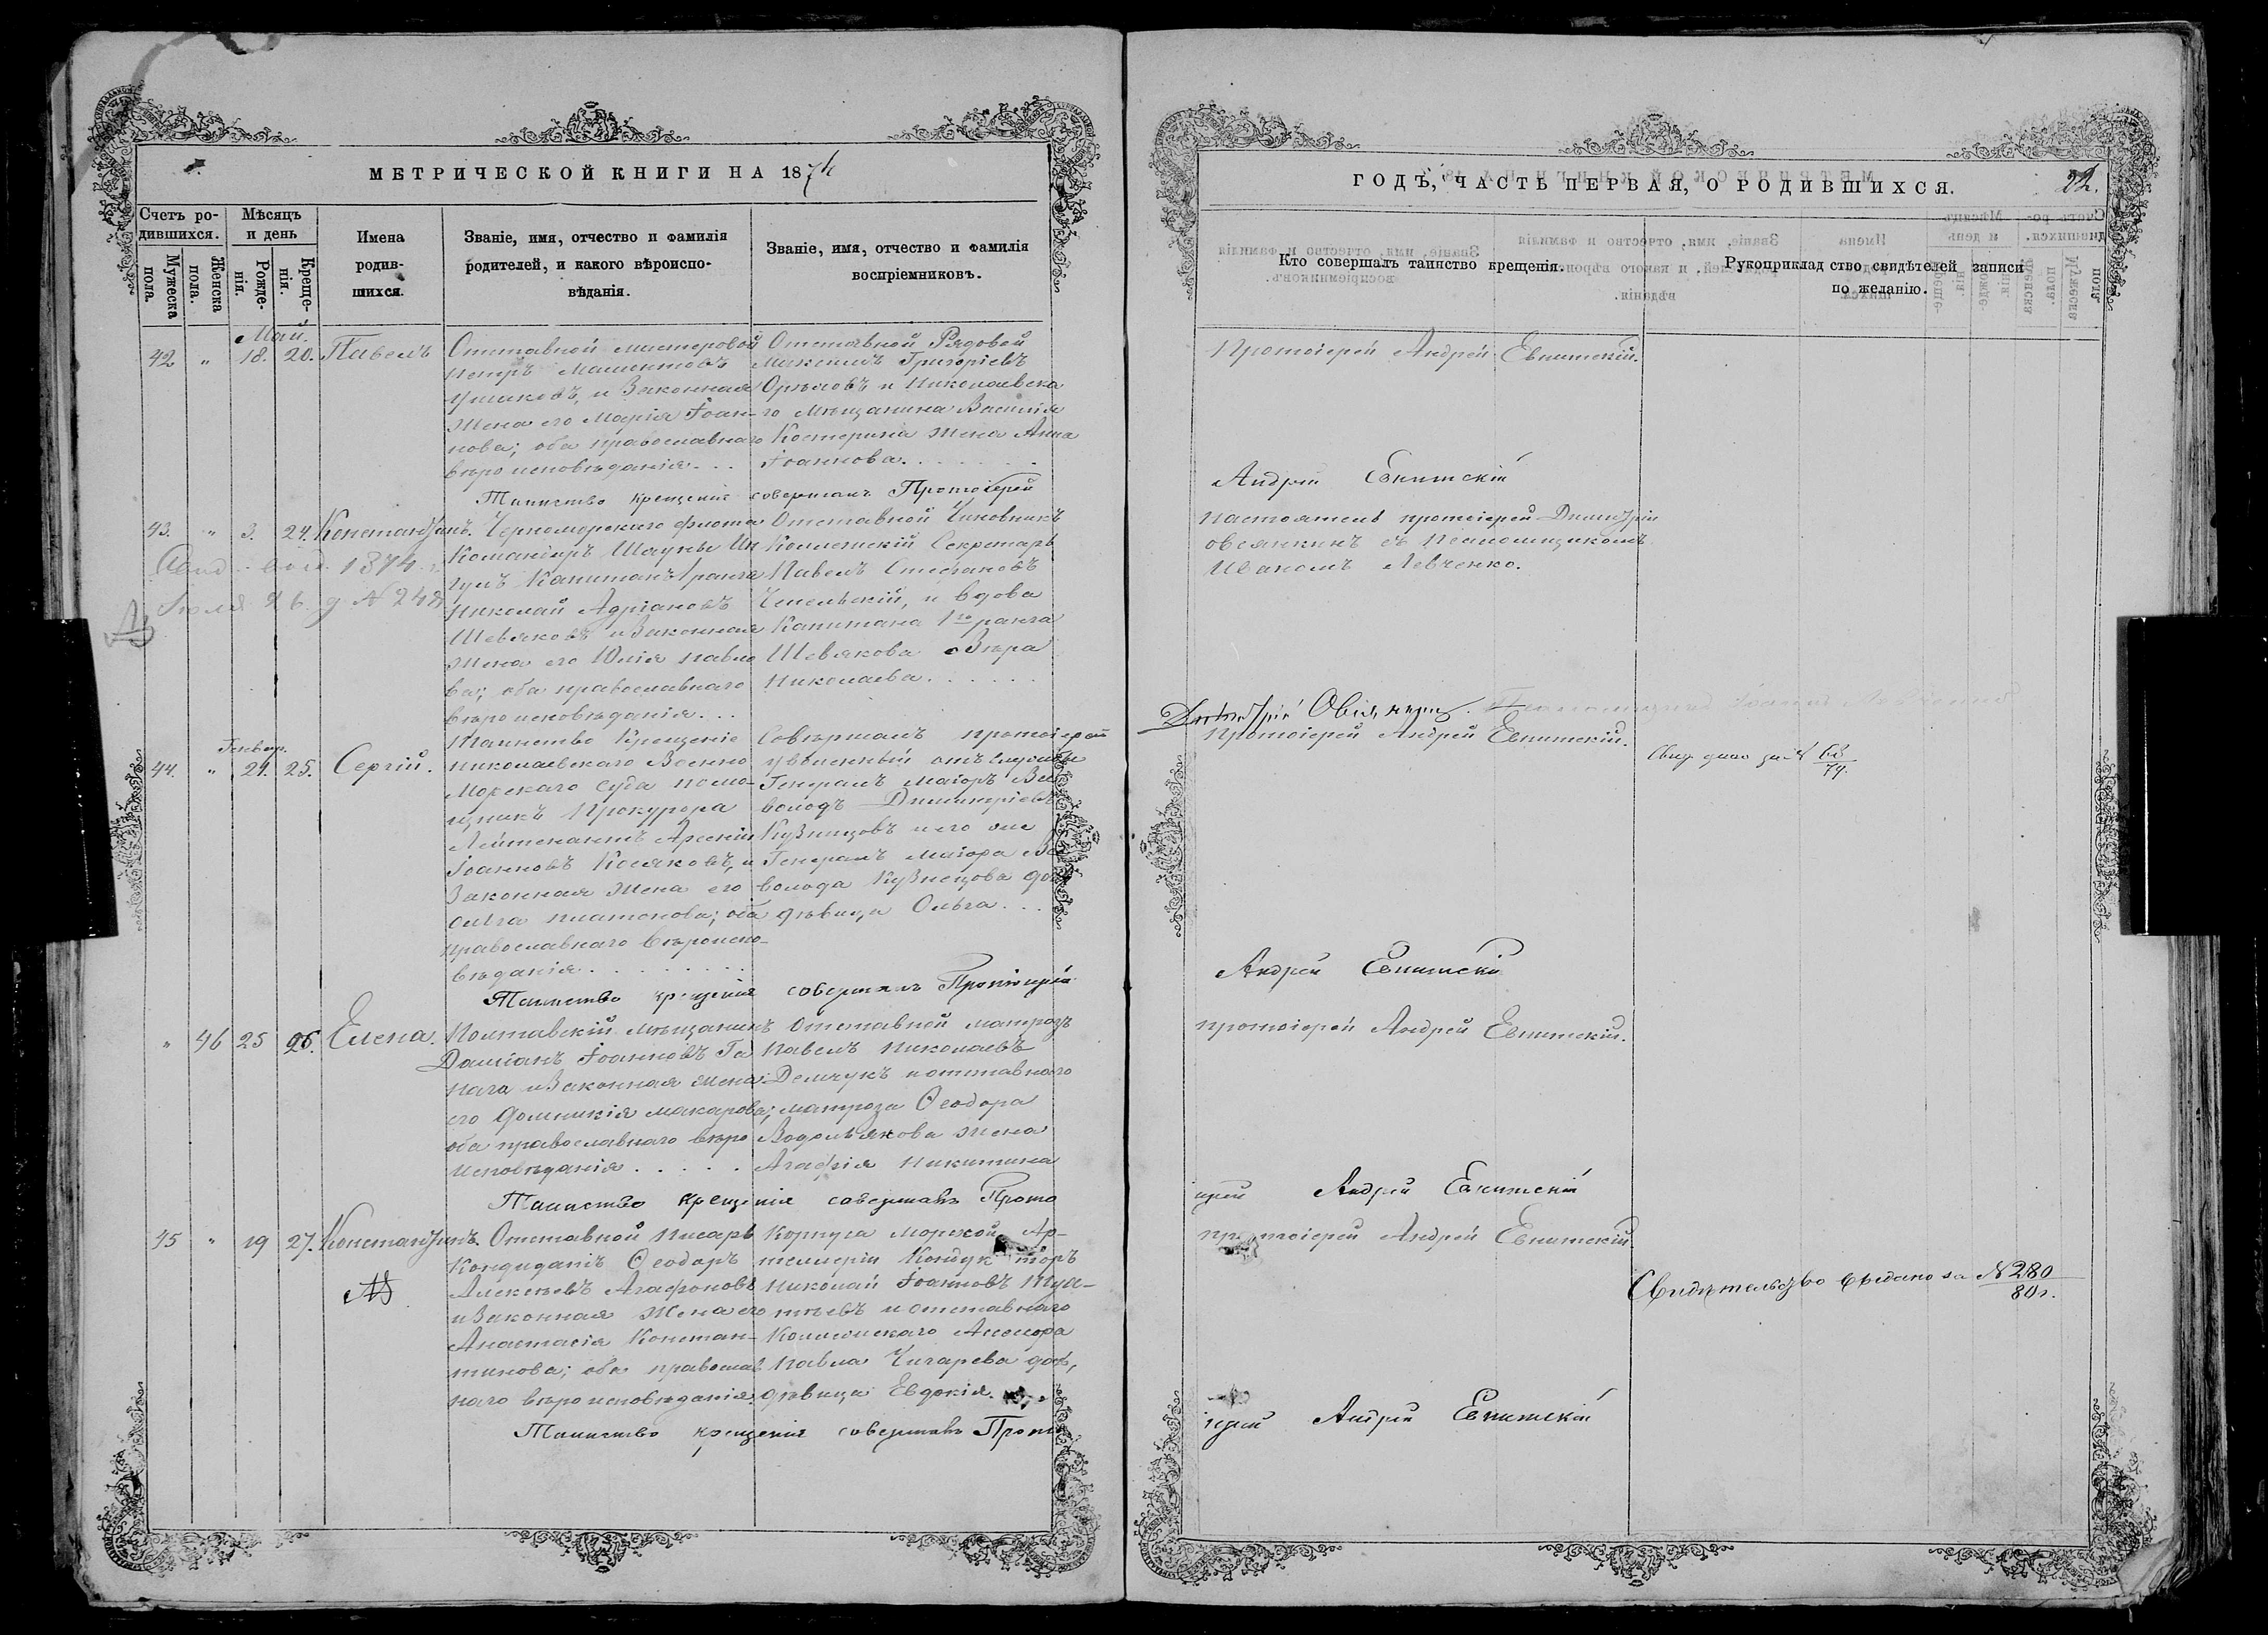 МЕТРИЧЕСКОЙ КНИГИ НА 1874
Счетъ ро-
дившихся.
Мужеска пола.
Женска пола.
Мѣсяцъ
и день
Рожде-
нія.
Креще-
нія.
Имена
родив-
шихся.
Званіе, имя, отчество и фамилія
родителей, и какого вѣроиспо-
вѣданія.
Званіе, имя, отчество и фамилія
воспріемниковъ.
Май.
42 " 18. 20. Павелъ
Отставной мастеровой
Петръ
Ушаковъ, и Законная
Жена его Марія Іоан-
нова; оба православнаго
вѣроисповѣданія...
Отставной Рядовой
Максимъ Григоріевъ
Орѣховъ и Николаевска
го мѣщанина Василія
Костерина жена Анна
Іоаннова.......
Таинство крещенія совершалъ Протоіерей
43. " 3. 24. Константинъ.
1874
Іюля 26. д № 248
Черноморскаго флота
Командиръ Шкуны Ин
гулъ Капитанъ 1 ранга
Николай Адріановъ
Шевяковъ и Законная
Жена его Юлія Павло
ва; оба православнаго
вѣроисповѣданія...
Отставной Чиновникъ
Коллежскій Секретарь
Павелъ Стефановъ
и вдова
Капитана 1го ранга
Шевякова Вѣра
Николаева......
Таинство Крещенія Совершалъ протоіерей
Генвар.
44. " 21. 25. Сергій.
Николаевскаго Военно
Морскаго Суда помо-
щникъ Прокурора
Лейтенантъ Арсеній
Іоанновъ Косяковъ, и
Законная Жена его
Ольга Платонова; оба
православнаго вѣроиспо-
вѣданія........
уволенный отъ службы
Генералъ Маіоръ Все
володъ Димитріевъ
Кузнецовъ и его же
Генералъ Маіора Все
волода Кузнецова доч
дѣвица Ольга...
Таинство крещенія совершалъ Протоіерей
" 46 25 26. Елена.
Полтавскій мѣщанинъ
Даміанъ Іоанновъ Га
пага и Законная жена
его Домникія Макарова;
оба православнаго вѣро
исповѣданія.....
Отставной матрозъ
Павелъ Николаевъ
Демчукъ и отставнаго
матроза Ѳеодора
Водолѣякова жена
Агафія Никитина
Таинство крещенія совершалъ Прото
45 " 19 27. Константинъ.
Отставной писарь
Кондиданіъ Ѳеодоръ
Алексѣевъ Агафоновъ
и Законная Жена его
Анастасія Констан-
тинова; оба православ
наго вѣроисповѣданія.
Корпуса морской Ар-
тиллеріи Кондукторъ
Николай Іоанновъ Туа-
тѣевъ и отставнаго
Коллежскаго Асесора
Павла Чигарева доч,
дѣвица Евдокія.
Таинство крещенія совершалъ Прото
ГОДЪ, ЧАСТЬ ПЕРВАЯ, О РОДИВШИХСЯ.
22.
Кто совершалъ таинство крещенія.
Рукоприкладство свидѣтелей записи
по желанію.
Протоіерей Андрей Евнитскій.
Андрей Евнитскій
Настоятель протоіерей Димитрій
Овсянкинъ съ Псаломщикомъ
Иваномъ Левченко.
Димитрій Овсянкин.
Протоіерей Андрей Евнитскій.
Свид. дано за № 68
74.
Андрей Евнитскій
Протоіерей Андрей Евнитскій.
іерей Андрей Евнитскій
протоіерей Андрей Евнитскій
Свидѣтельство выдано за № 280
80 г.
іерей Андрей Евнитскій